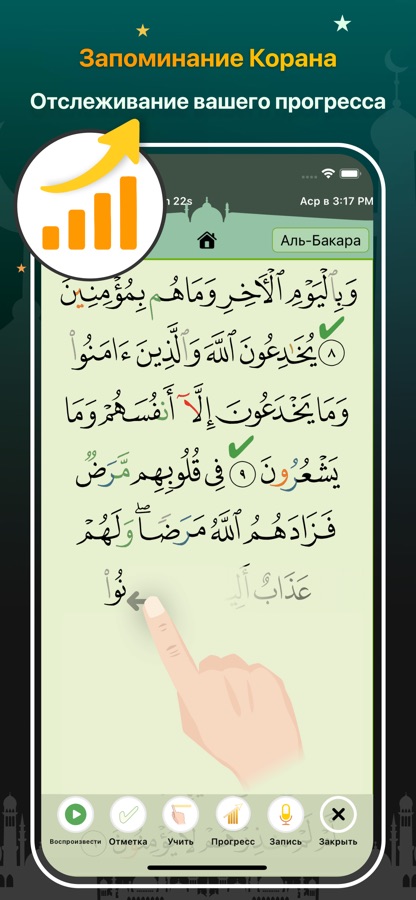 Запоминание Корана
Отслеживание вашего прогресса
22s
Аср в 3:17 PM
Аль-Бакара
وَبِٱلْيَوْمِ ٱلْأَخِرِ وَمَا هُم بِمُؤْمِنِينَ
٨ يُخَٰدِعُونَ ٱللَّهَ وَٱلَّذِينَ ءَامَنُوا۟
وَمَا يَخْدَعُونَ إِلَّآ أَنفُسَهُمْ وَمَا
يَشْعُرُونَ ٩ فِى قُلُوبِهِم مَّرَضٌ
فَزَادَهُمُ ٱللَّهُ مَرَضًا ۖ وَلَهُمْ
عَذَابٌ
Воспроизвести
Отметка
Учить
Прогресс
Запись
Закрыть